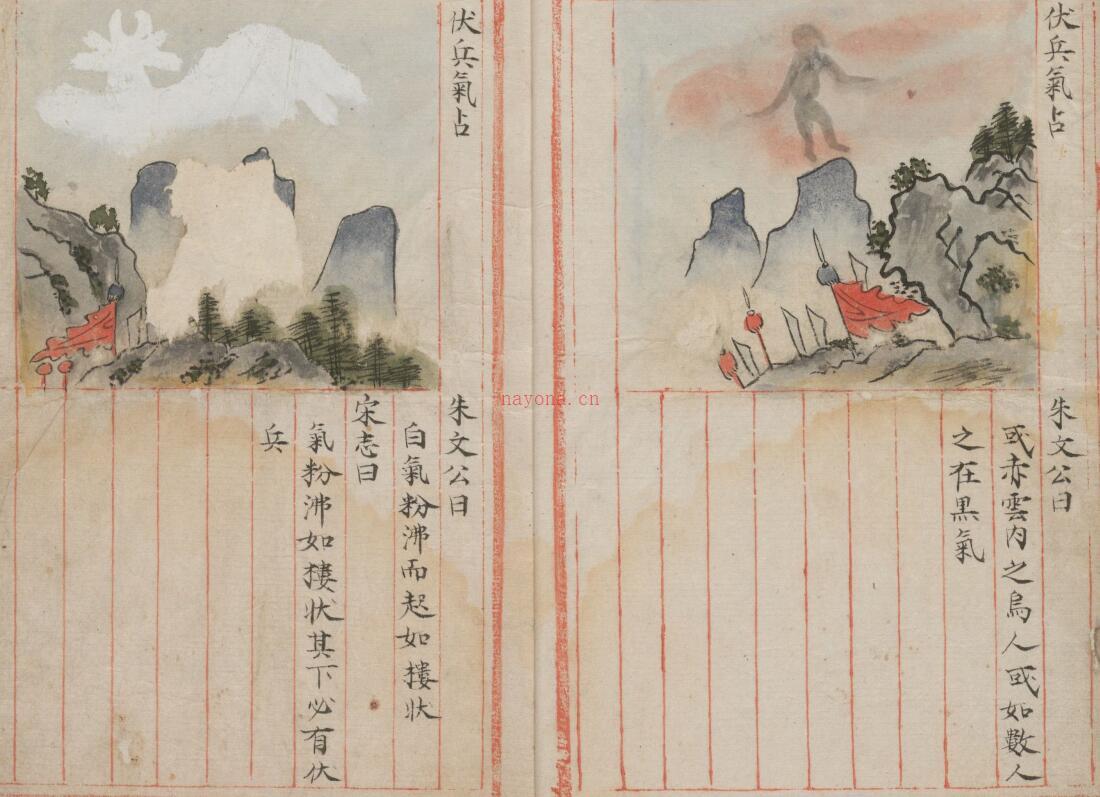 伏兵氣占
朱文公曰
或赤雲內之烏人或如數人
之在黒氣
伏兵氣占
朱文公曰
白氣粉沸而起如樓狀
宋志曰
氣粉沸如樓狀其下必有伏
兵
nayona.cn